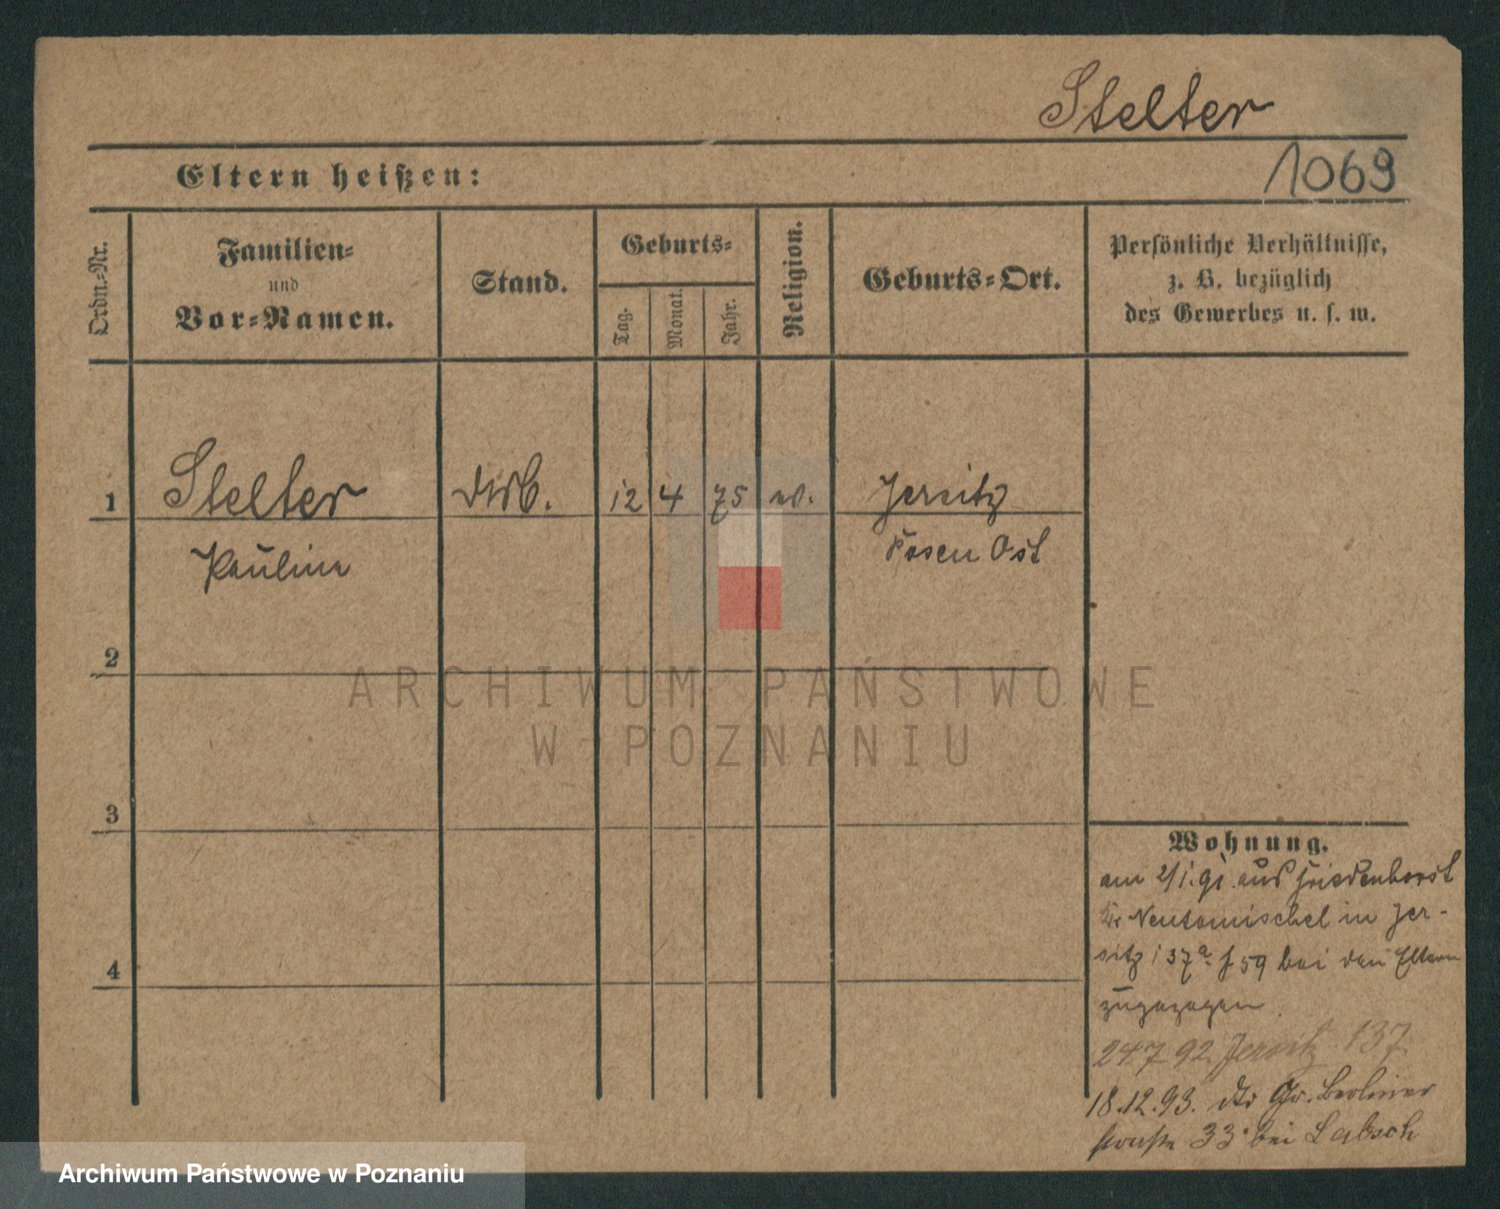 Stelter
1069
Eltern heißen:
Ordn.-Nr.
Familien-
und
Vor-Namen.
Stand.
Geburts-
Tag.
Monat.
Jahr.
Religion.
Geburts-Ort.
Persönliche Verhältnisse,
z. B. bezüglich
des Gewerbes u. s. w.
1
Stelter
12
4
75
ev.
Jersitz
Paulin
Posen Ost
2
3
4
Wohnung.
am 2/1.91 aus Friedenhorst
Kr Neutomischel in Jer-
sitz 137a f 59 bei den Eltern
zugezogen
24 7 92 Jersitz 137
18.12.93. dto Gr. Berliner
straße 33 bei Labsch
ARCHIWUM PAŃSTWOWE
W POZNANIU
Archiwum Państwowe w Poznaniu